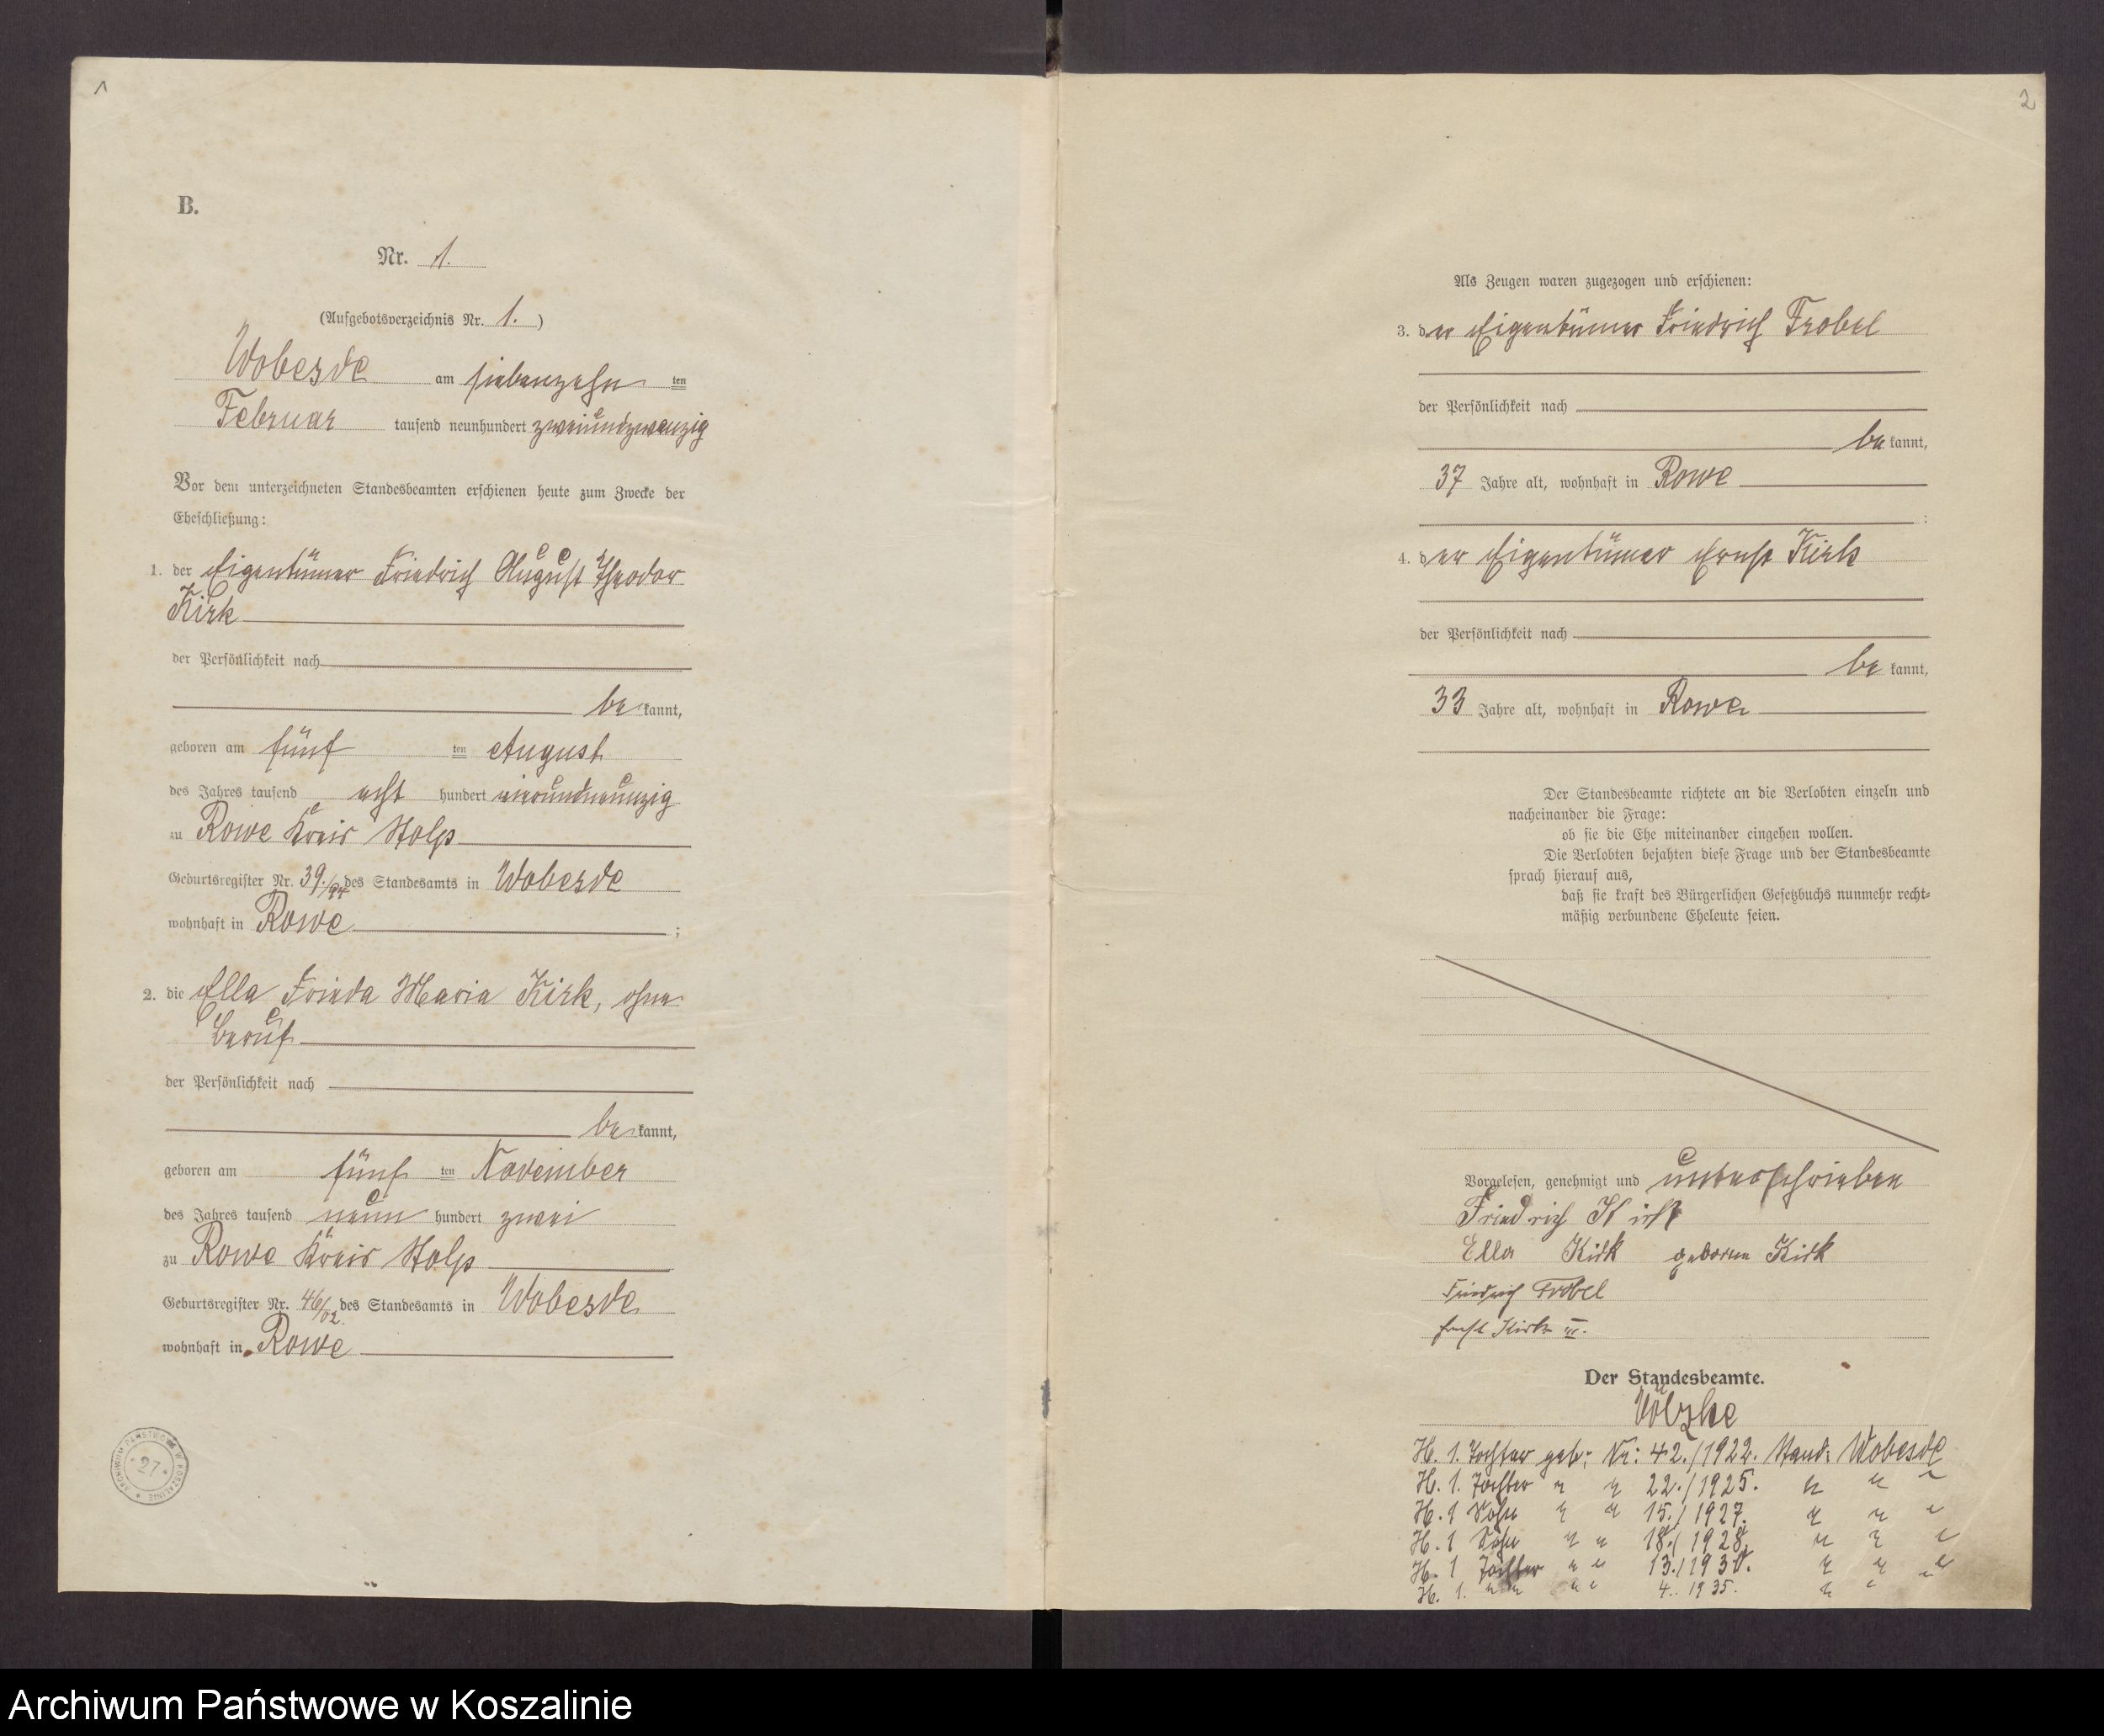 1
B.
Nr. 1.
(Aufgebotsverzeichnis Nr. 1.)
Wobesde am siebenzehn ten
Februar tausend neunhundert zweiundzwanzig
Vor dem unterzeichneten Standesbeamten erschienen heute zum Zwecke der
Eheschließung:
1. der Eigentümer Friedrich August Theodor
Kirk
der Persönlichkeit nach
be kannt,
geboren am fünf ten August
des Jahres tausend acht hundert vierundneunzig
zu Rowe Kreis Stolp
Geburtsregister Nr. 39./94 des Standesamts in Wobesde
wohnhaft in Rowe ;
2. die Ella Frieda Maria Kirk, ohne
Beruf
der Persönlichkeit nach
be kannt,
geboren am fünf ten November
des Jahres tausend neun hundert zwei
zu Rowe Kreis Stolp
Geburtsregister Nr. 46/02. des Standesamts in Wobesde
wohnhaft in Rowe
ARCHIWUM PAŃSTWOWE W KOSZALINIE
27
2
Als Zeugen waren zugezogen und erschienen:
3. der Eigentümer Friedrich Frobel
der Persönlichkeit nach
be kannt,
37 Jahre alt, wohnhaft in Rowe
;
4. der Eigentümer Ernst Kirk
der Persönlichkeit nach
be kannt,
33 Jahre alt, wohnhaft in Rowe
Der Standesbeamte richtete an die Verlobten einzeln und
nacheinander die Frage:
ob sie die Ehe miteinander eingehen wollen.
Die Verlobten bejahten diese Frage und der Standesbeamte
sprach hierauf aus,
daß sie kraft des Bürgerlichen Gesetzbuchs nunmehr recht-
mäßig verbundene Eheleute seien.
Vorgelesen, genehmigt und unterschrieben
Friedrich Kirk
Ella Kirk geborene Kirk
Friedrich Frobel
Ernst Kirk III.
Der Standesbeamte.
Völzke
H. 1. Tochter geb: Nr: 42./1922. Stand: Wobesde
H. 1. Tochter " " 22./1925. " " "
H. 1 Sohn " " 15./1927. " " "
H. 1 Sohn " " 18./1928. " " "
H. 1 Tochter " " 13./1930. " " "
H. 1. " " " " 4. 1935. " " "
Archiwum Państwowe w Koszalinie